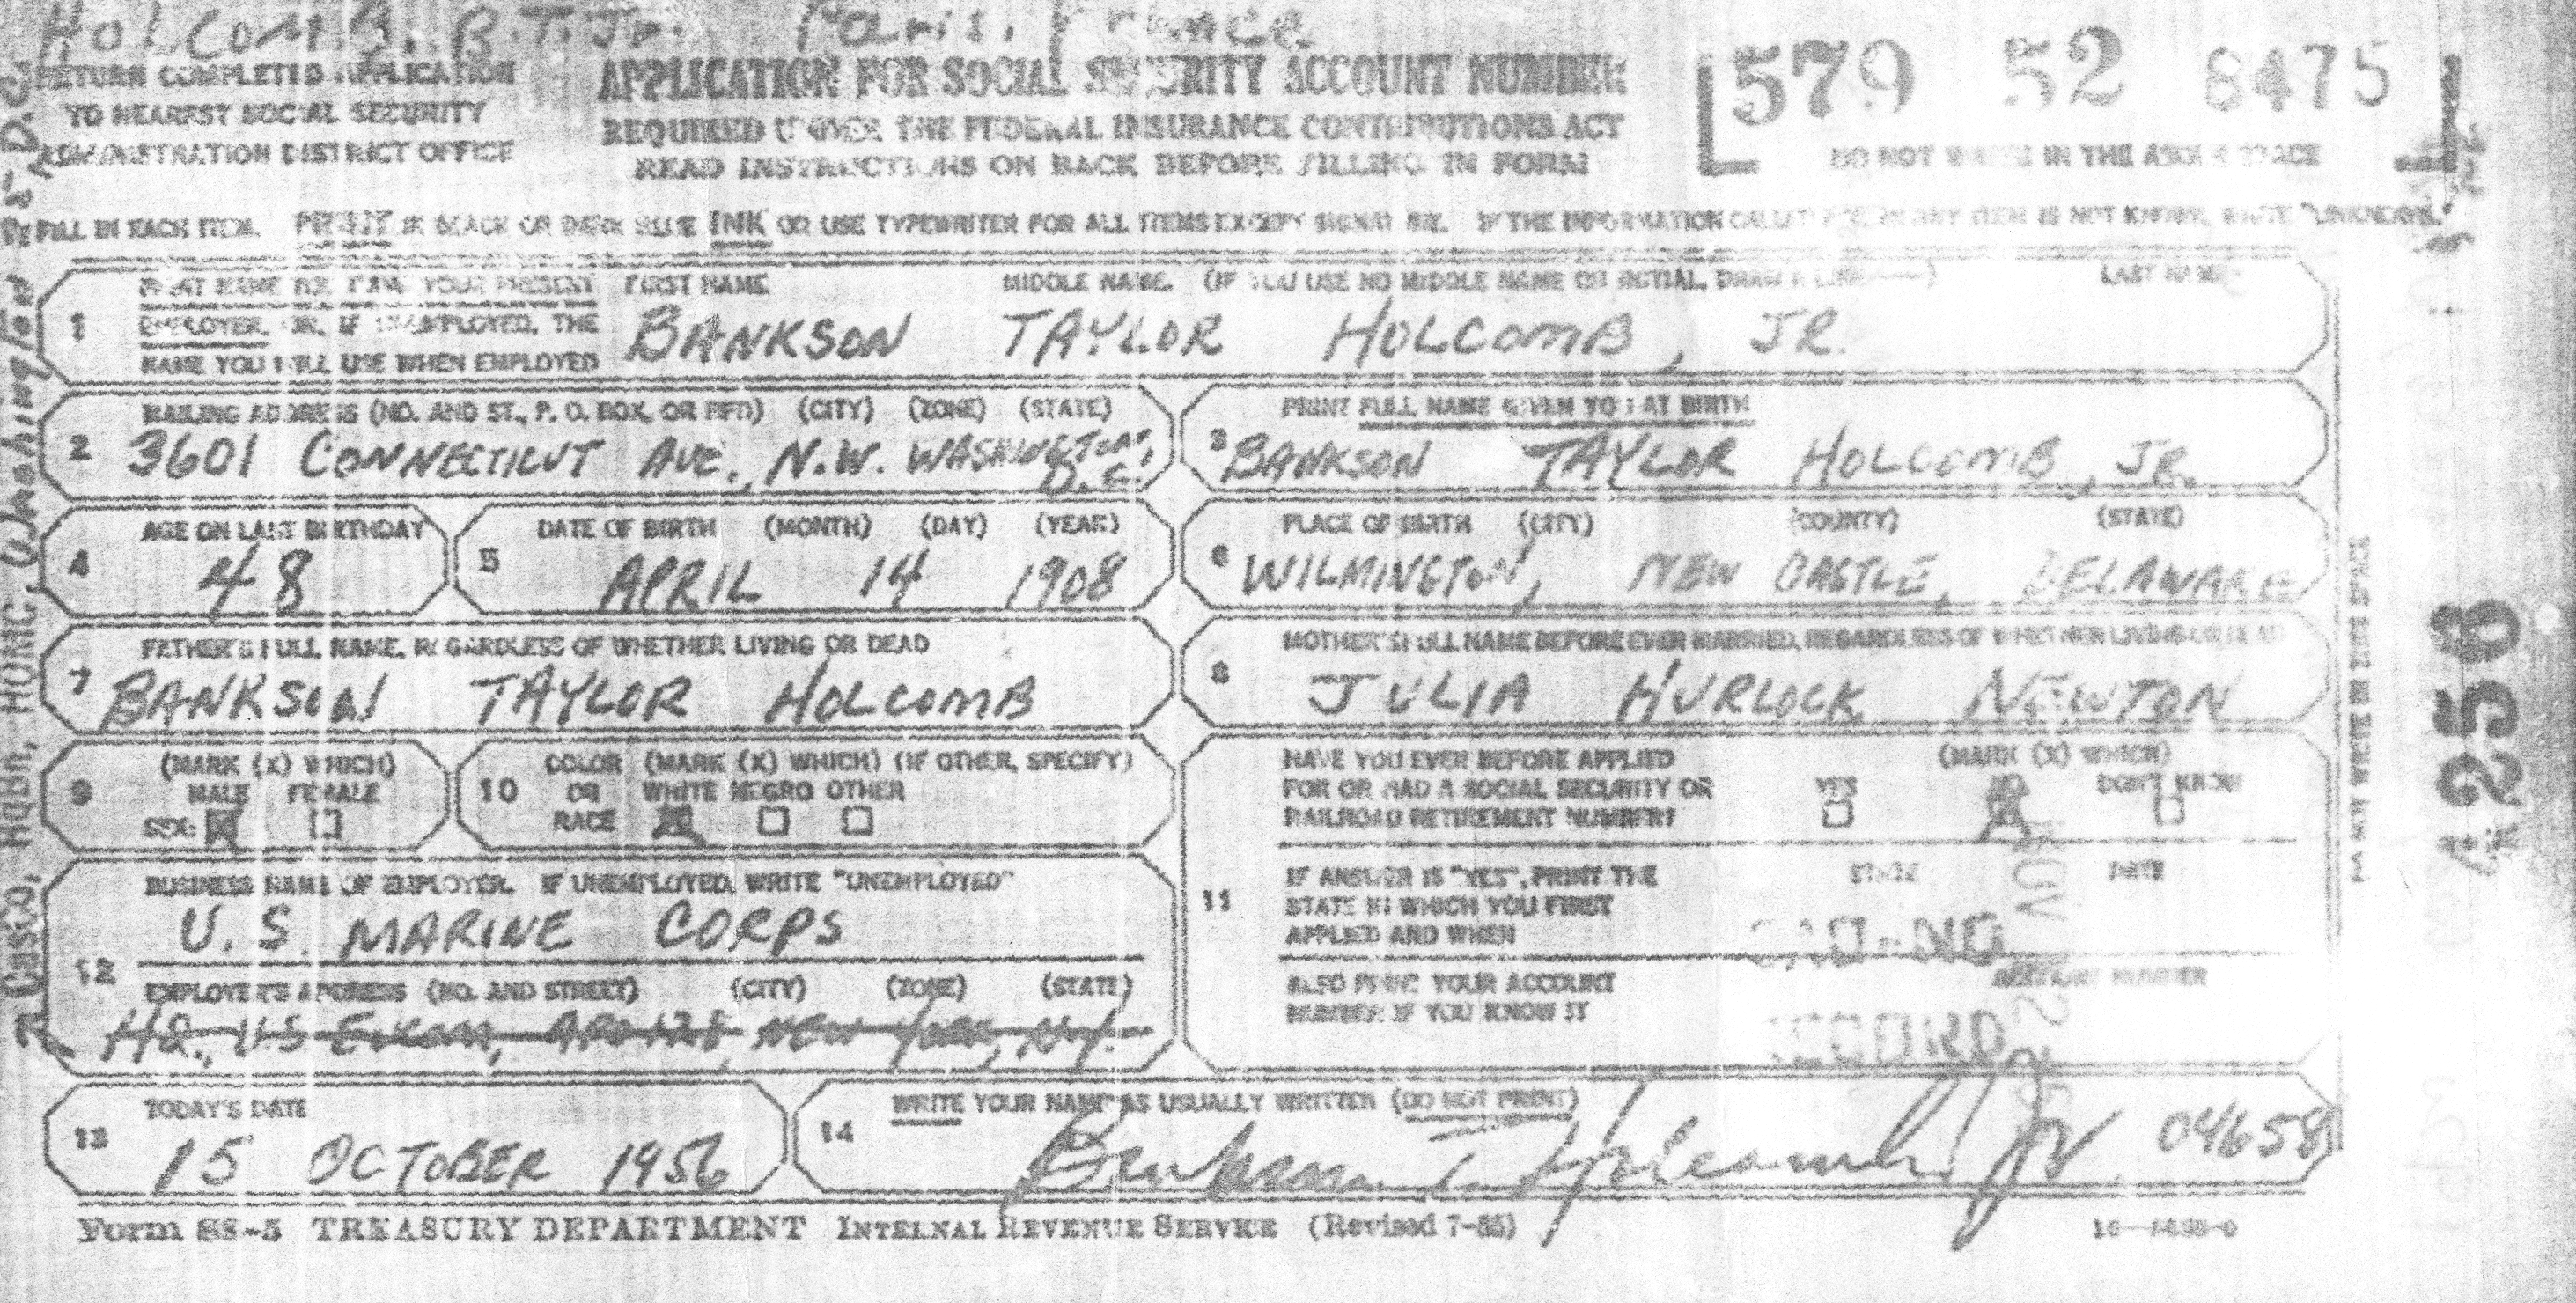 HOLCOMB, B.T. Jr. Paris, France
RETURN COMPLETED APPLICATION
TO NEAREST SOCIAL SECURITY
ADMINISTRATION DISTRICT OFFICE
APPLICATION FOR SOCIAL SECURITY ACCOUNT NUMBER
REQUIRED UNDER THE FEDERAL INSURANCE CONTRIBUTIONS ACT
READ INSTRUCTIONS ON BACK BEFORE FILLING IN FORM
579 52 8475
DO NOT WRITE IN THE ABOVE SPACE
FILL IN EACH ITEM. PRINT IN BLACK OR DARK BLUE INK OR USE TYPEWRITER FOR ALL ITEMS EXCEPT SIGNATURE. IF THE INFORMATION CALLED FOR IN ANY ITEM IS NOT KNOWN, WRITE "UNKNOWN."
1 PRINT NAME FIRST NAME MIDDLE NAME (IF YOU USE NO MIDDLE NAME OR INITIAL, DRAW A LINE —) LAST NAME
YOUR PRESENT
EMPLOYER, OR, IF UNEMPLOYED, THE
NAME YOU WILL USE WHEN EMPLOYED
BANKSON TAYLOR HOLCOMB, JR.
2 MAILING ADDRESS (NO. AND ST., P. O. BOX, OR RFD) (CITY) (ZONE) (STATE)
3601 CONNECTICUT AVE., N.W. WASHINGTON,
D.C.
3 PRINT FULL NAME GIVEN YOU AT BIRTH
BANKSON TAYLOR HOLCOMB, JR.
4 AGE ON LAST BIRTHDAY
48
5 DATE OF BIRTH (MONTH) (DAY) (YEAR)
APRIL 14 1908
6 PLACE OF BIRTH (CITY) (COUNTY) (STATE)
WILMINGTON, NEW CASTLE, DELAWARE
7 FATHER'S FULL NAME, REGARDLESS OF WHETHER LIVING OR DEAD
BANKSON TAYLOR HOLCOMB
8 MOTHER'S FULL NAME BEFORE EVER MARRIED, REGARDLESS OF WHETHER LIVING OR DEAD
JULIA HURLOCK NEWTON
9 (MARK (X) WHICH)
MALE FEMALE
SEX: X
10 COLOR (MARK (X) WHICH) (IF OTHER, SPECIFY)
OR WHITE NEGRO OTHER
RACE X
11 HAVE YOU EVER BEFORE APPLIED (MARK (X) WHICH)
FOR OR HAD A SOCIAL SECURITY OR YES NO DON'T KNOW
RAILROAD RETIREMENT NUMBER? X
IF ANSWER IS "YES", PRINT THE STATE DATE
STATE IN WHICH YOU FIRST
APPLIED AND WHEN
ALSO PRINT YOUR ACCOUNT ACCOUNT NUMBER
NUMBER IF YOU KNOW IT
RECORD
12 BUSINESS NAME OF EMPLOYER. IF UNEMPLOYED, WRITE "UNEMPLOYED"
U.S. MARINE CORPS
EMPLOYER'S ADDRESS (NO. AND STREET) (CITY) (ZONE) (STATE)
HQ., U.S. EUCOM, APO 128, NEW YORK, N.Y.
13 TODAY'S DATE
15 OCTOBER 1956
14 WRITE YOUR NAME AS USUALLY WRITTEN (DO NOT PRINT)
Bankson T. Holcomb, Jr. 04658
Form SS-5 TREASURY DEPARTMENT INTERNAL REVENUE SERVICE (Revised 7-55)
HqBn, HQMC, Washington
4258